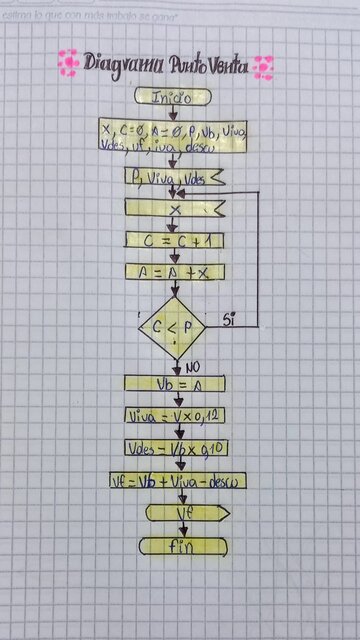 estima lo que con más trabajo se gana"
Diagrama Punto Venta
Inicio
X, C=0, A=0, P, Vb, Viva,
Vdes, vf, iva, descu
P, Viva, Vdes
X
C = C + 1
A = A + X
C < P
Si
NO
Vb = A
Viva = V x 0,12
Vdes = Vb x 0,10
Vf = Vb + Viva - descu
Vf
fin